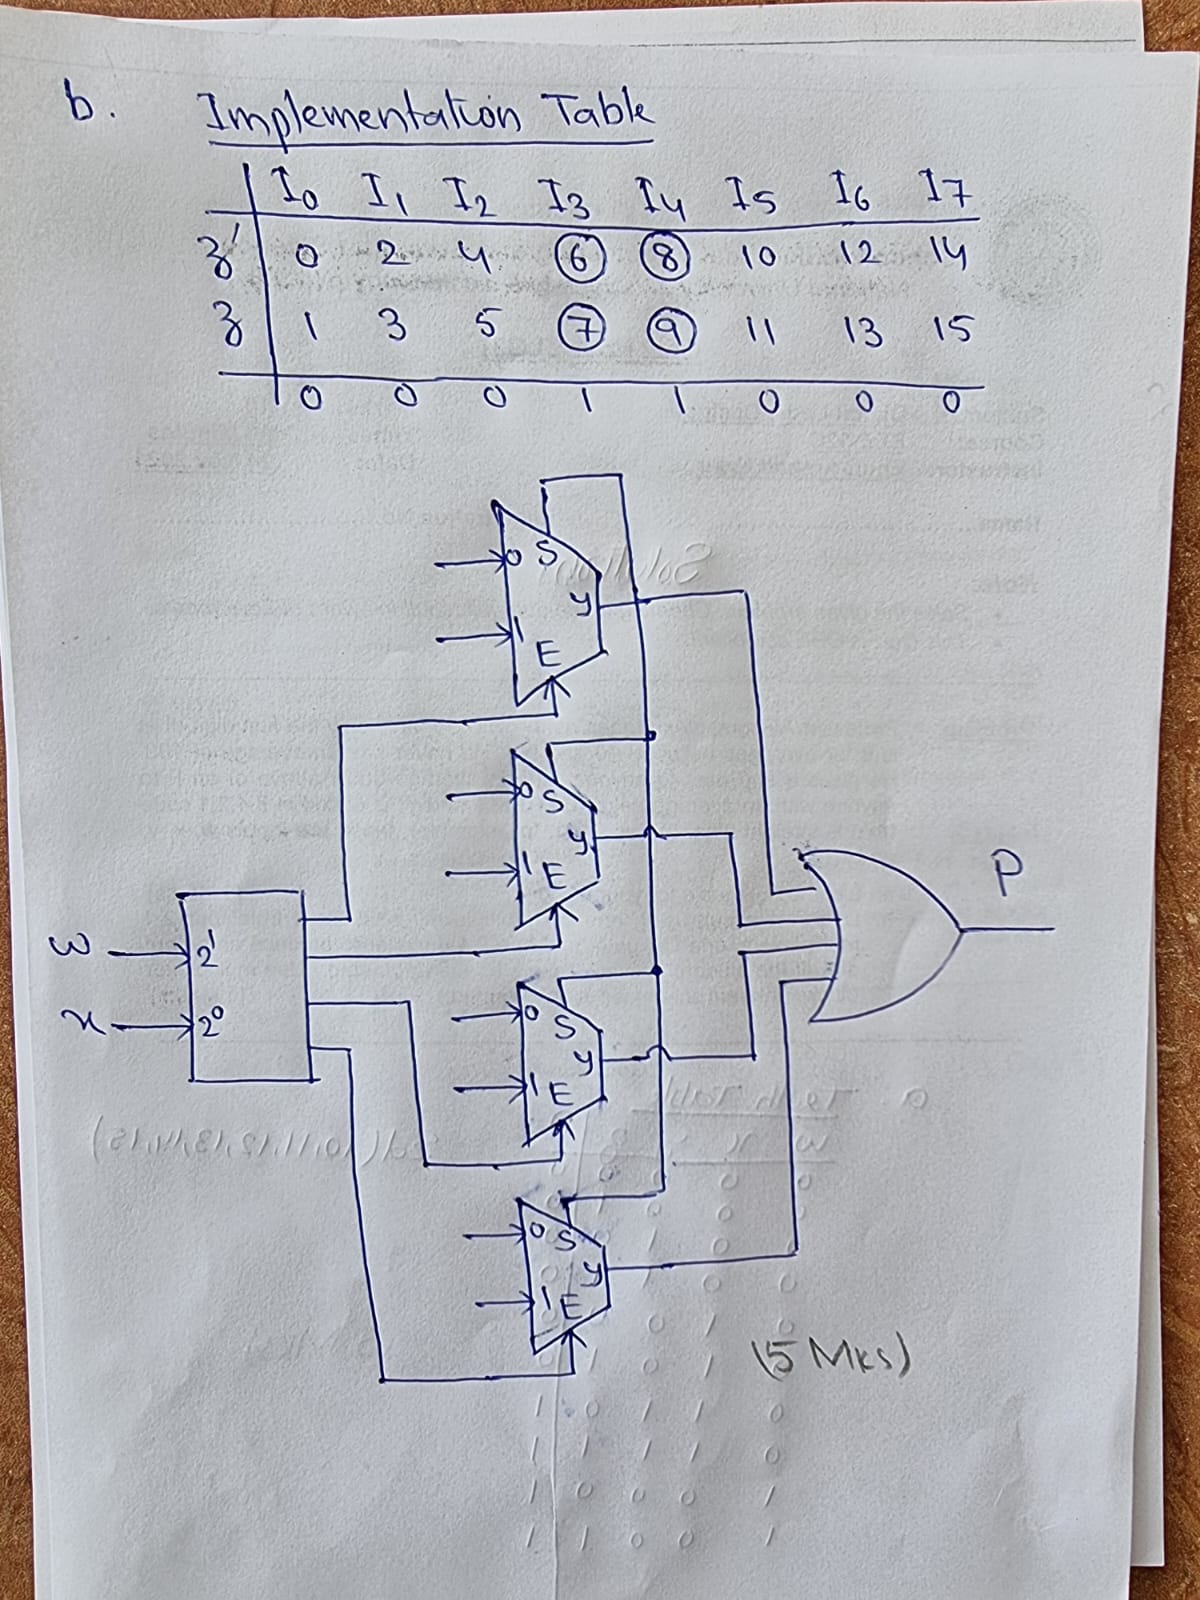 b. Implementation Table
I0 I1 I2 I3 I4 I5 I6 I7
z' 0 2 4 6 8 10 12 14
z 1 3 5 7 9 11 13 15
0 0 0 1 1 0 0 0
0 S
y
1 E
0 S
y
1 E
P
w 2^1
x 2^0
0 S
y
1 E
0 S
y
1 E
(5 Mks)